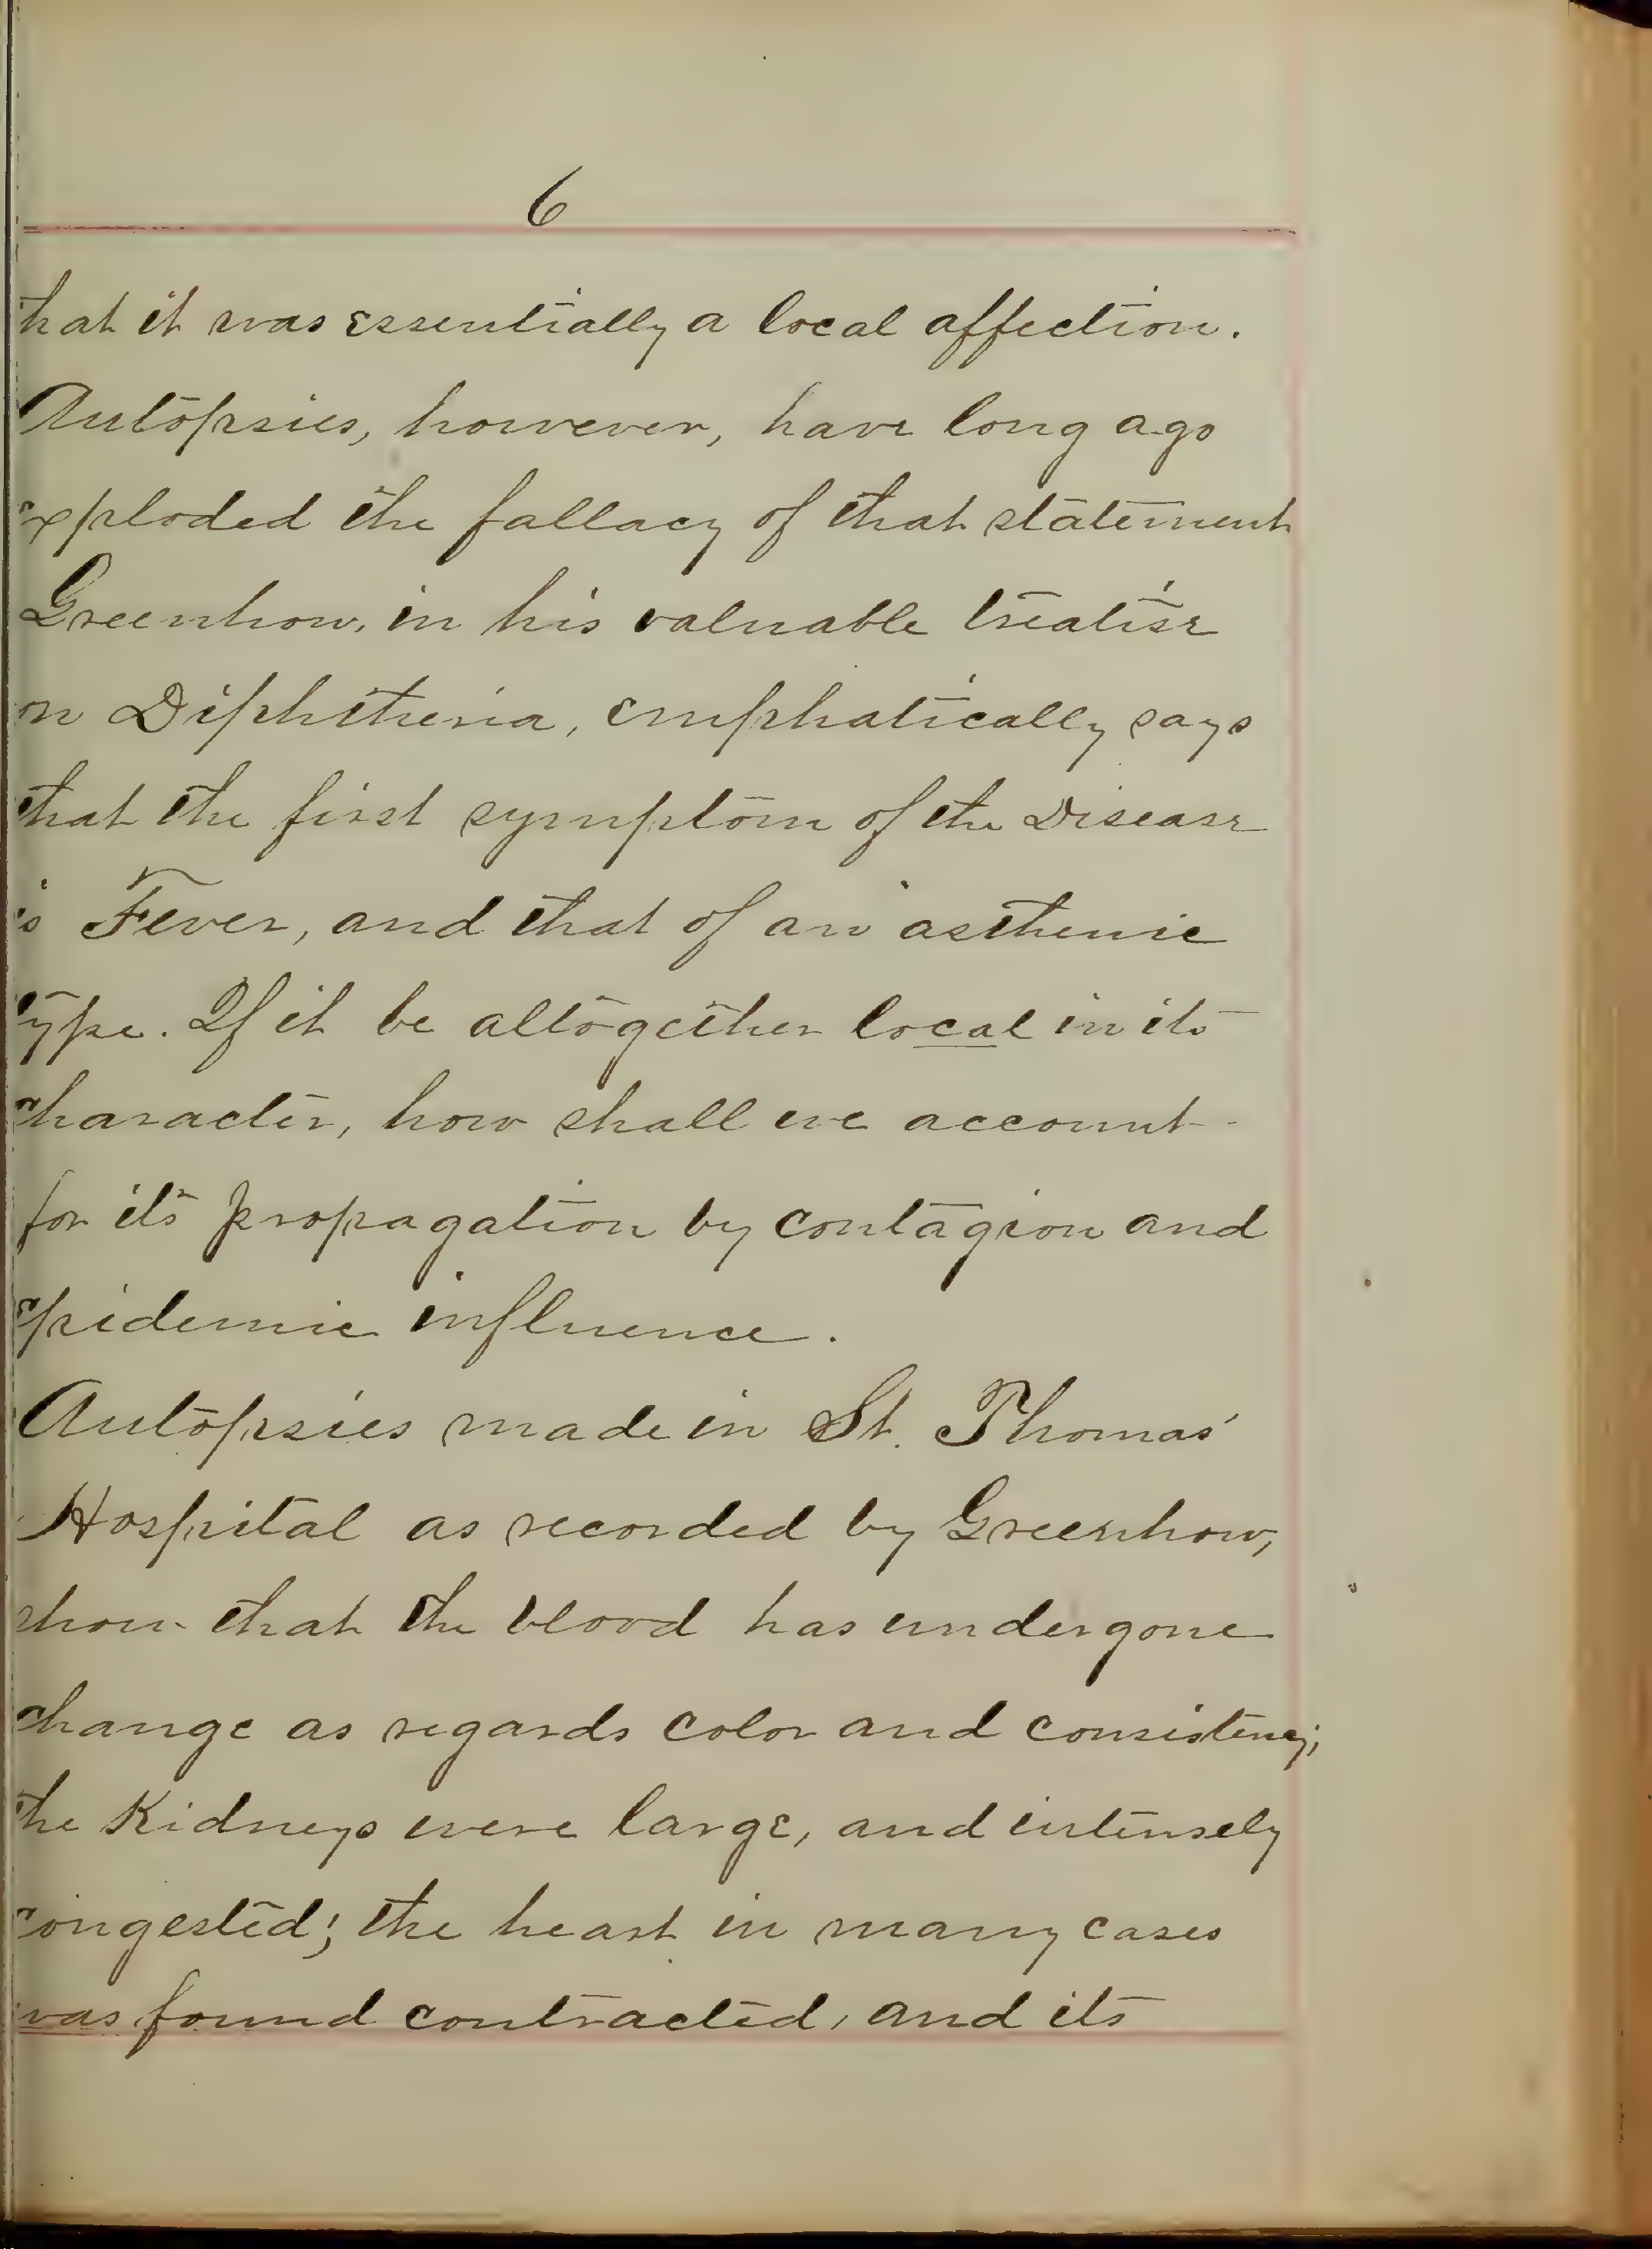 6
that it was essentially a local affection.
Autopsies, however, have long ago
exploded the fallacy of that statement
Greenhow, in his valuable treatise
on Diphtheria, emphatically says
that the first symptom of the Disease
is Fever, and that of an asthenic
type. If it be altogether local in its
character, how shall we account
for its propagation by contagion and
epidemic influence.
Autopsies made in St. Thomas'
Hospital as recorded by Greenhow,
show that the blood has undergone
change as regards color and consistency;
the Kidneys were large, and intensely
congested; the heart in many cases
was found contracted, and its